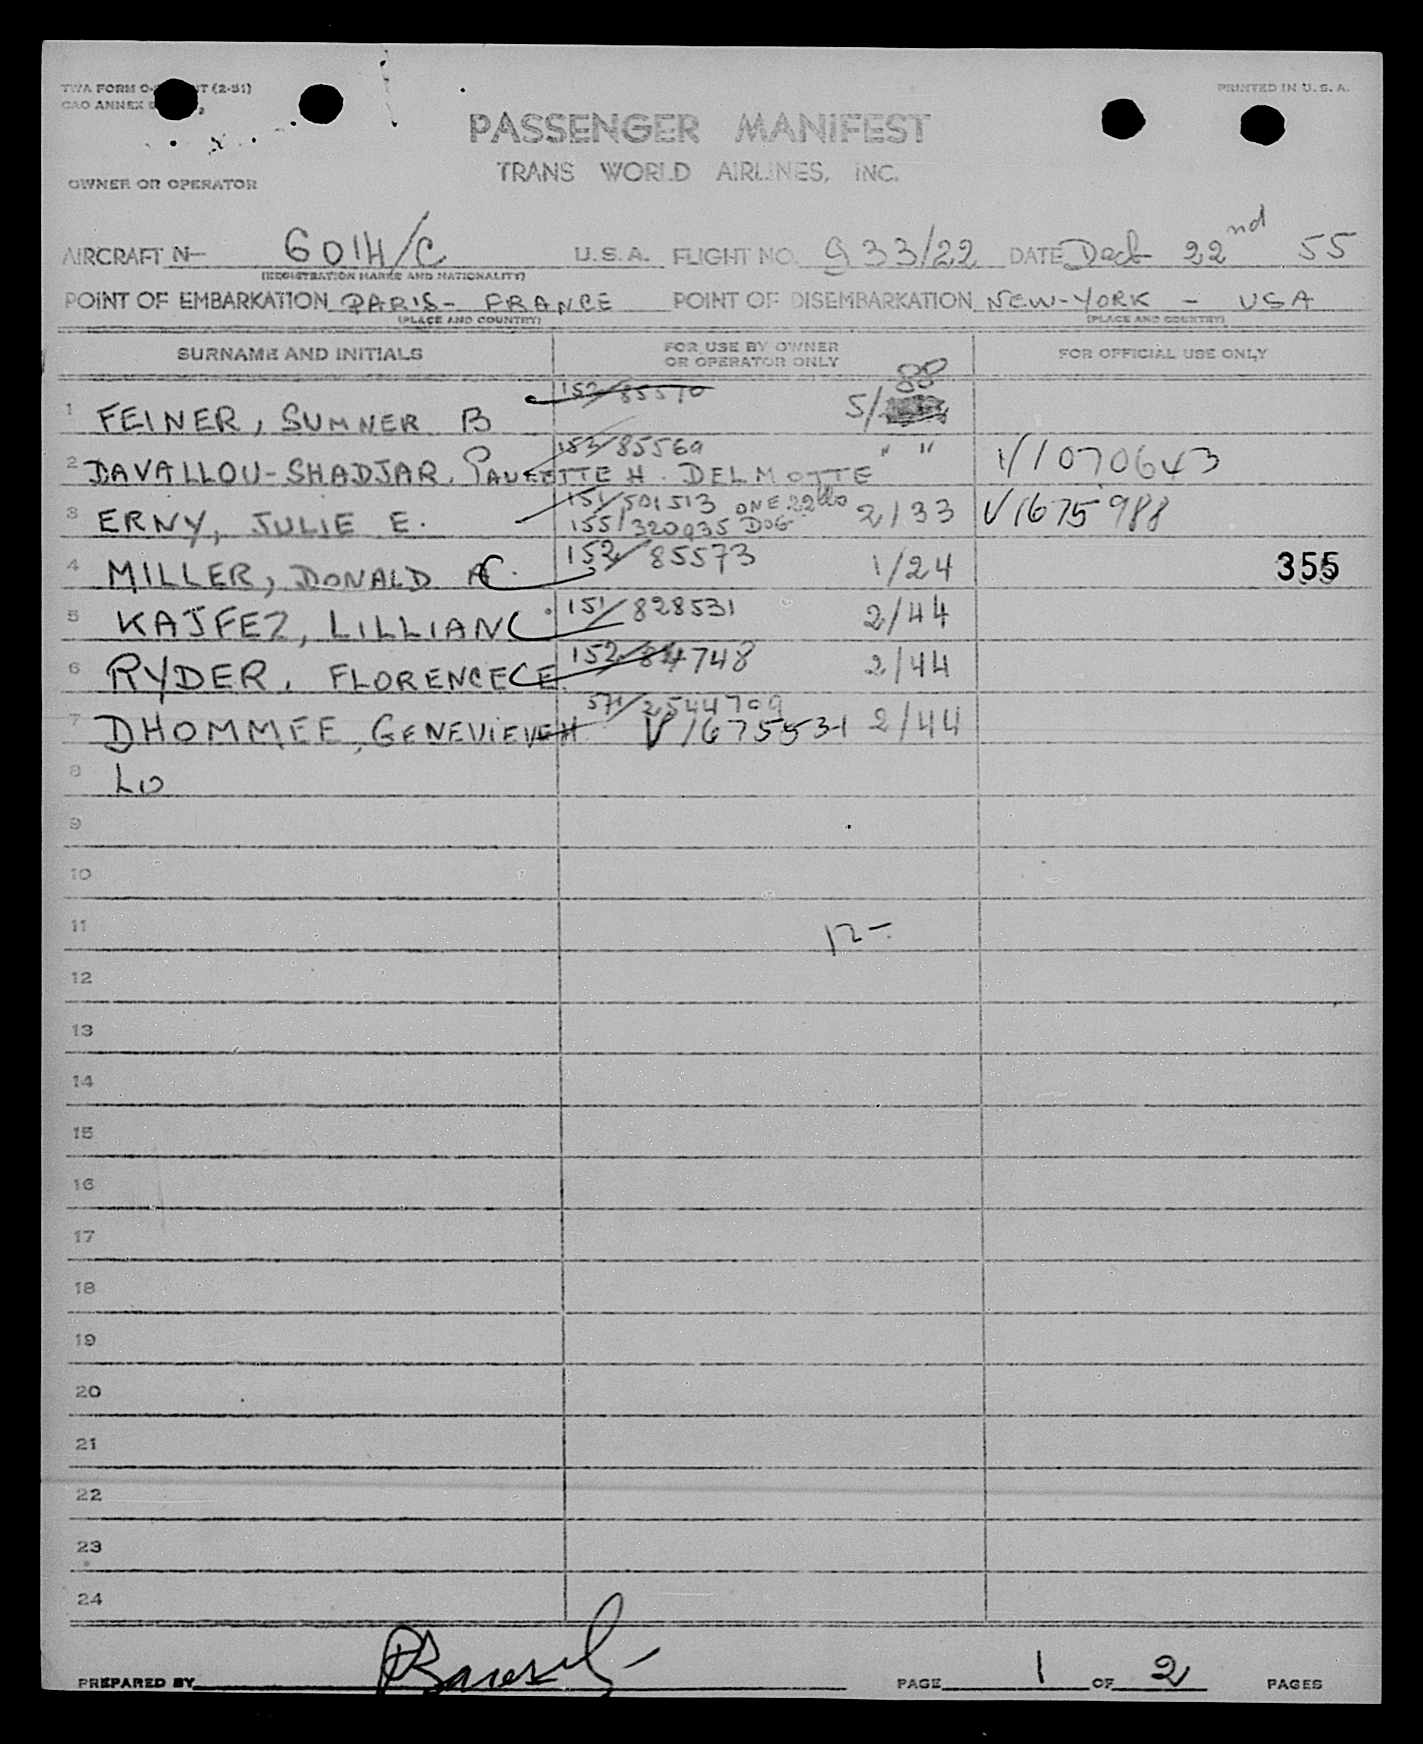 TWA FORM O- T (2-51) PRINTED IN U. S. A.
CAO ANNEX
PASSENGER MANIFEST
TRANS WORLD AIRLINES, INC.
OWNER OR OPERATOR
AIRCRAFT N— 6014/C U. S. A. FLIGHT NO. 933/22 DATE Dect 22nd 55
(REGISTRATION MARKS AND NATIONALITY)
POINT OF EMBARKATION PARIS - FRANCE POINT OF DISEMBARKATION NEW-YORK - USA
(PLACE AND COUNTRY) (PLACE AND COUNTRY)
SURNAME AND INITIALS FOR USE BY OWNER OR OPERATOR ONLY FOR OFFICIAL USE ONLY
1 FEINER, SUMNER B 152/85570 5/ 88
2 DAVALLOU-SHADJAR, PAULETTE H. DELMOTTE 153/85569 " " V/1070643
3 ERNY, JULIE E. 151/501513 ONE 22 155/320935 DOG 2/33 V1675988
4 MILLER, DONALD A. 152/85573 1/24 355
5 KAJFEZ, LILLIAN 151/828531 2/44
6 RYDER, FLORENCE E. 152/84748 2/44
7 DHOMMEE, GENEVIEVE H 571/2544709 V 1675531 2/44
8 LO
9
10
11 12-
12
13
14
15
16
17
18
19
20
21
22
23
24
PREPARED BY PAGE 1 OF 2 PAGES